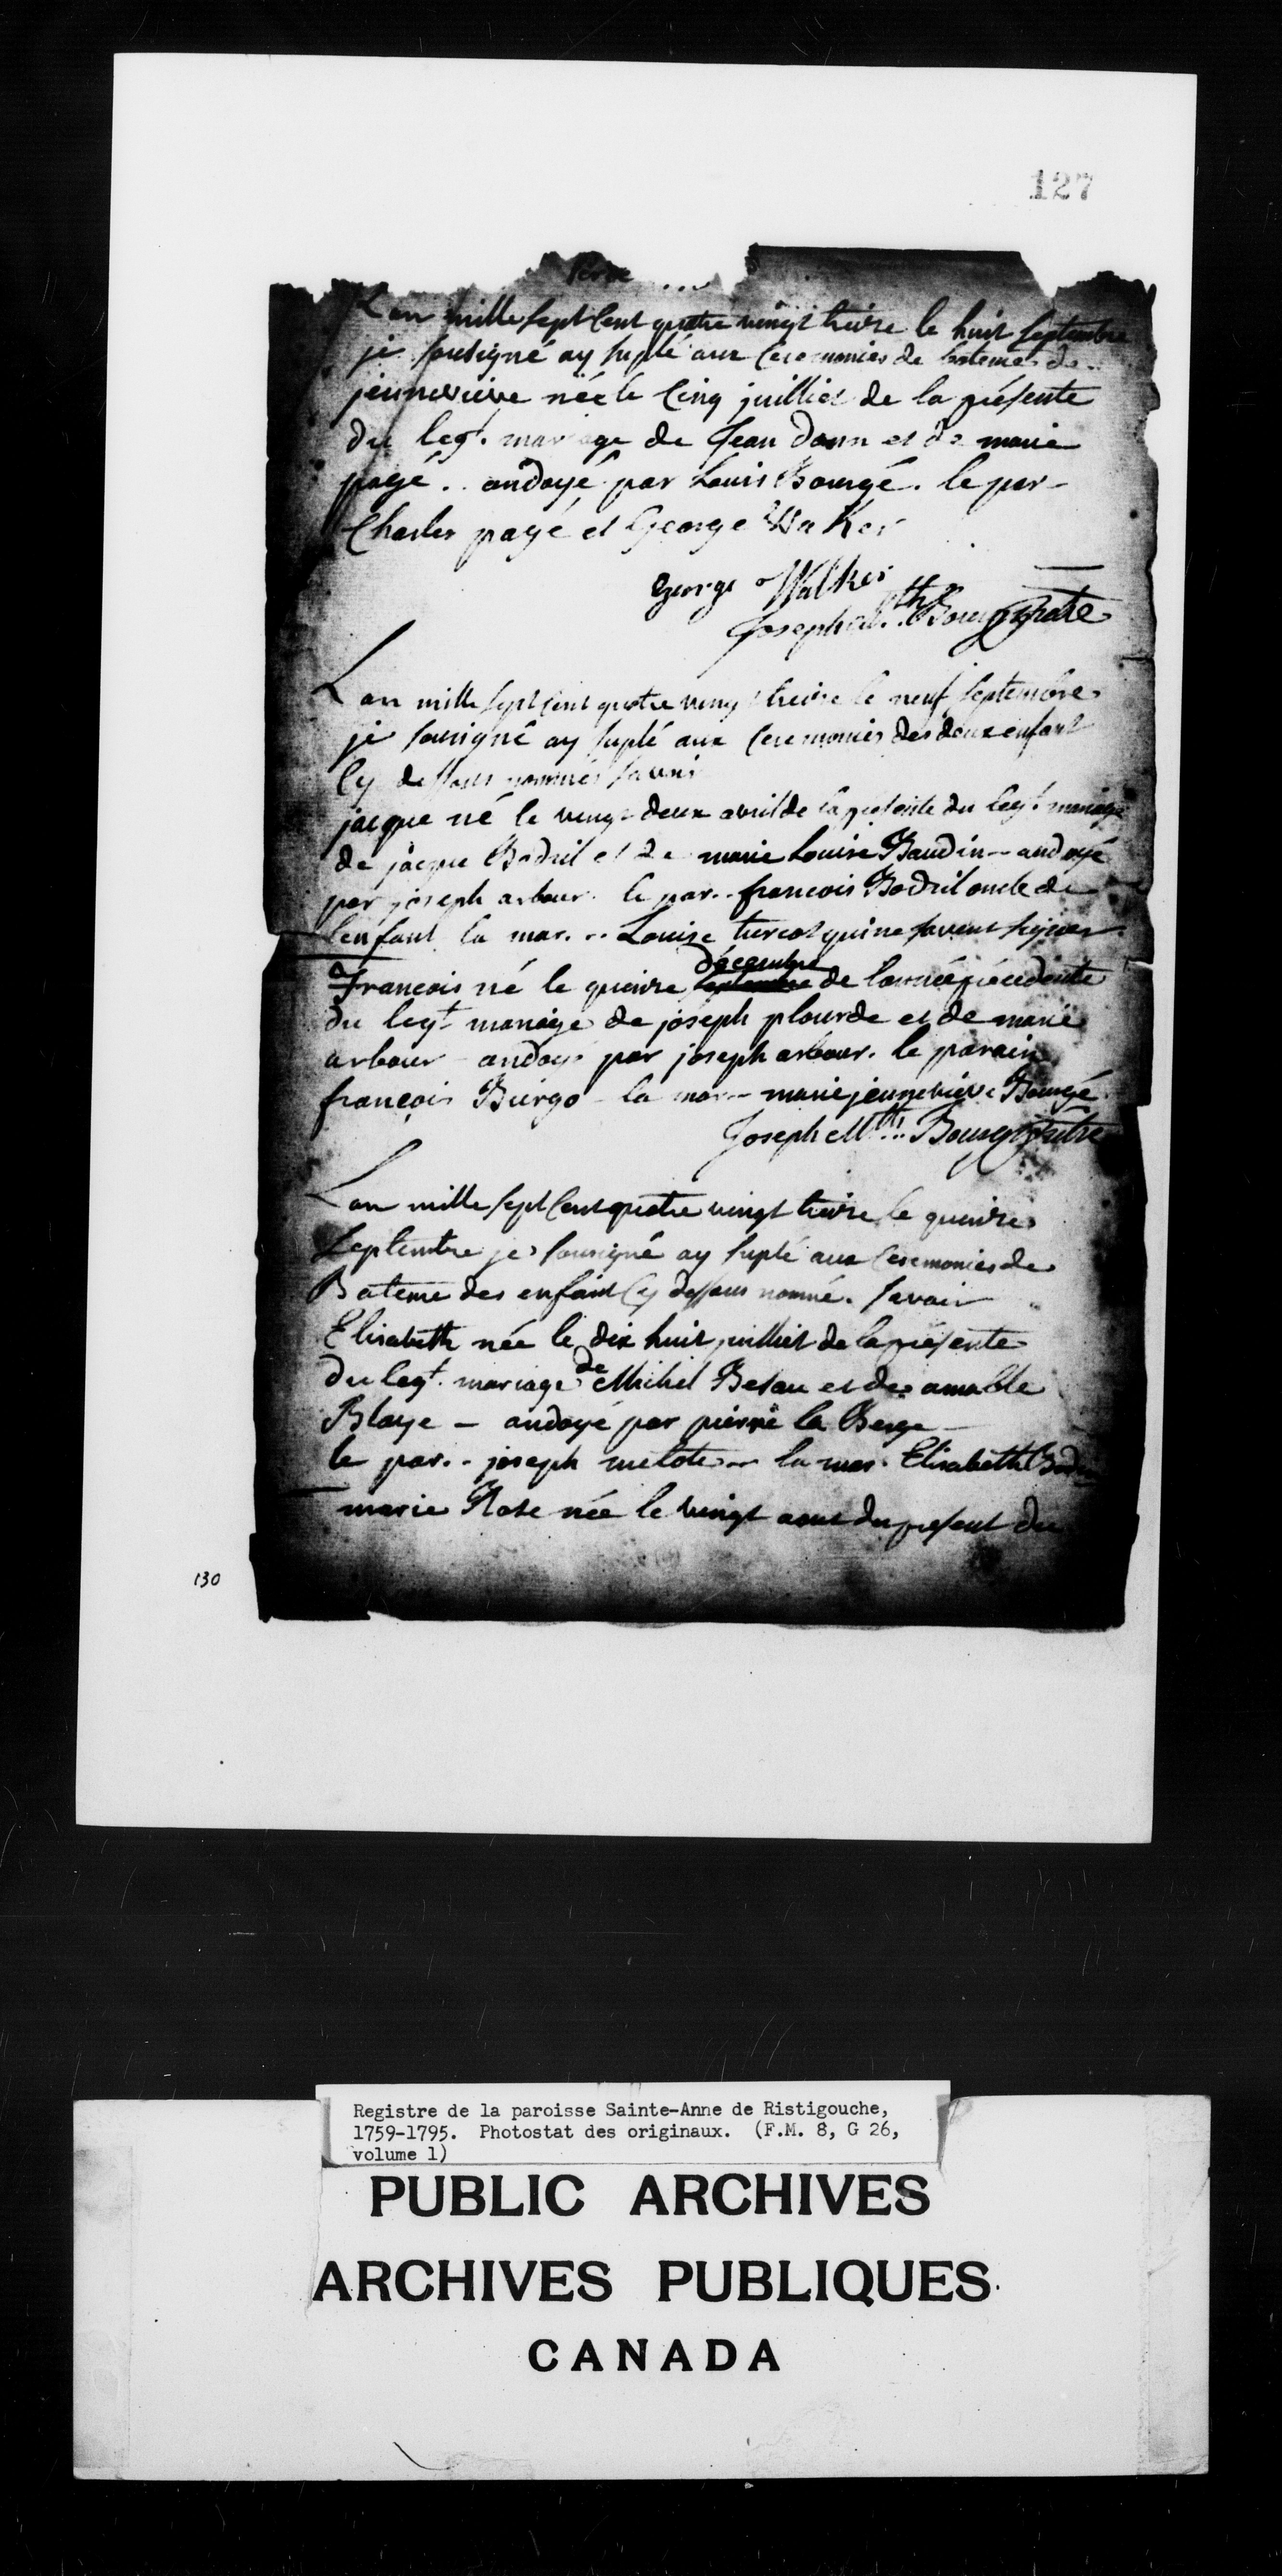 127
Lan mille sept cent quatre vingt treize le huit septembre
je sousigné ay suplé aux ceremonies de bateme de
jeunevieve née le cinq juilliet de la présente
du legt. mariage de Jean Dann et de marie
pagé.. andoyé par Louis Bourgé. le par-
Charles pagé et George Walker
George Walker
Joseph Mth. Bourg ptre
Lan mille sept cent quatre vingt treize le neuf septembre
je sousigné ay suplé aux ceremonies des deux enfant
cy dessous nommés savoir
jacque né le vingt deux avril de la présente du legt. mariage
de jacque Bodril et de marie Louise Baudin - andoyé
par joseph arbour. le par.. francois Bodril oncle de
lenfant la mar... Louise turcot qui ne savent signer
décembre
Francois né le quinze septembre de lannée précédente
du legt. mariage de joseph plourde et de marie
arbour - andoyé par joseph arbour. le parain
françois Burgo - la mar-- marie jeunevieve Bourgé
Joseph Mth.. Bourg ptre
Lan mille sept cent quatre vingt treize le quinze
Septembre je sousigné ay suplé aux ceremonies de
Bateme des enfant cy dessous nommé. savoir
Elisabeth née le dix huit juilliet de la présente
de
du legt. mariage Michel Besau et de amable
Blaye - andoyé par pierre la Berge -
le par.. joseph melote -- la mar. Elisabeth
marie Rose née le vingt aout du present du
130
Registre de la paroisse Sainte-Anne de Ristigouche,
1759-1795. Photostat des originaux. (F.M. 8, G 26,
volume 1)
PUBLIC ARCHIVES
ARCHIVES PUBLIQUES
CANADA